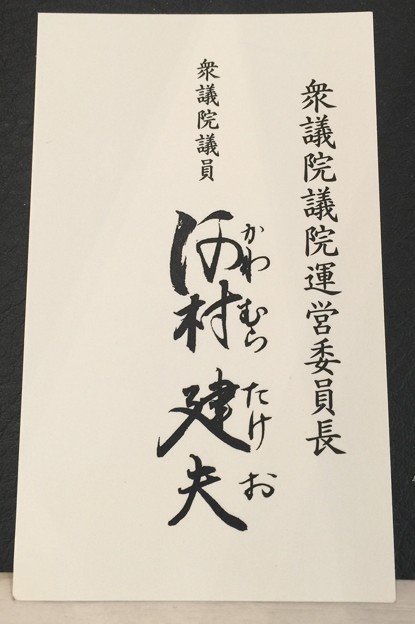 衆議院議院運営委員長
衆議院議員
河村建夫
かわむらたけお